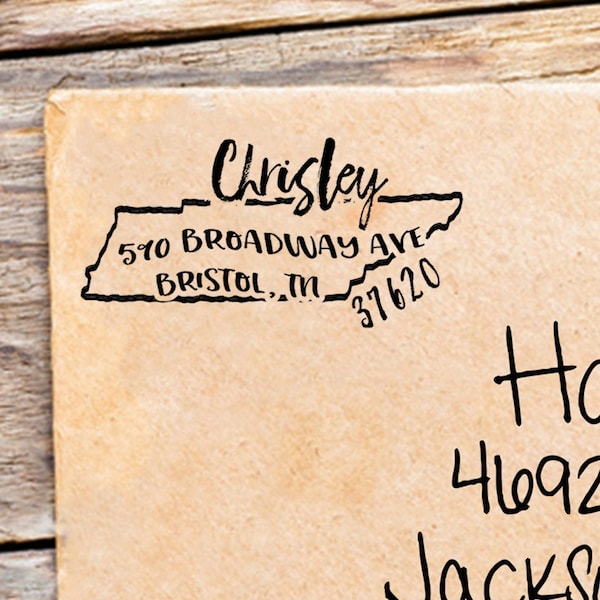 Chrisley
590 BROADWAY AVE
BRISTOL, TN
37620
Ho
4692
Jackso